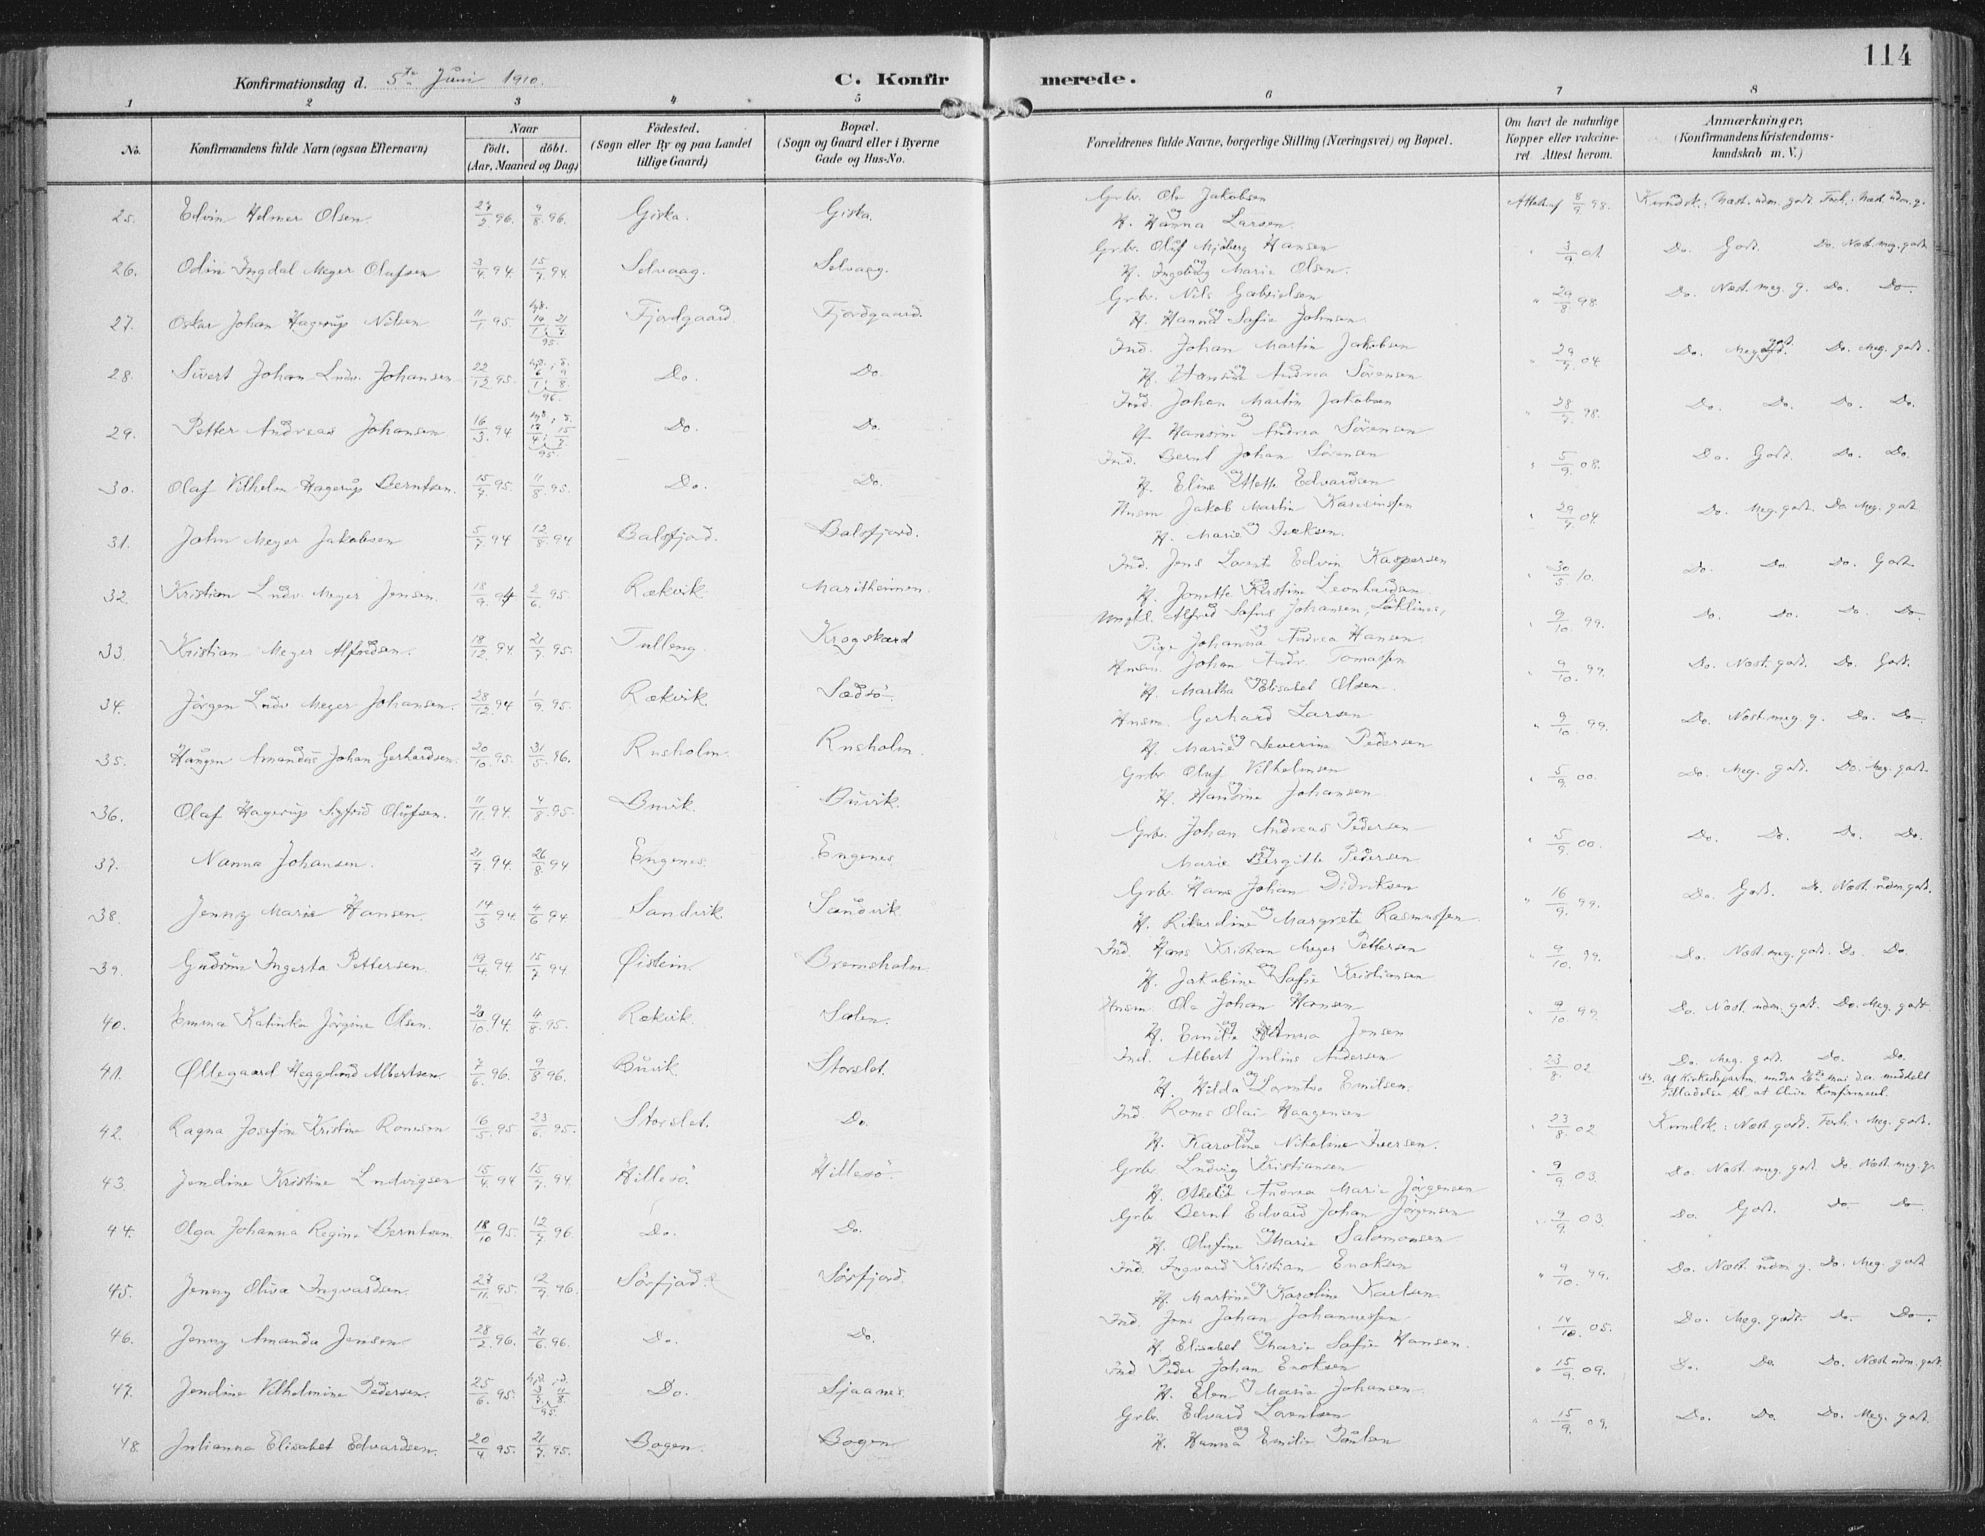 114
Konfirmationsdag d. 5te Juni 1910.
C. Konfirmerede.
1 2 3 4 5 6 7 8
No.
Konfirmandens fulde Navn (ogsaa Efternavn)
Naar
født. døbt.
(Aar, Maaned og Dag)
Fødested.
(Sogn eller By og paa Landet
tillige Gaard)
Bopæl.
(Sogn og Gaard eller i Byerne
Gade og Hus-No.
Forældrenes fulde Navne, borgerlige Stilling (Næringsvei) og Bopæl.
Om havt de naturlige
Kopper eller vakcine-
ret Attest herom.
Anmærkninger,
(Konfirmandens Kristendoms-
kundskab m. V.)
Grbr. Ole Jakobsen
25. Edvin Helmer Olsen 27/2 96. 9/8 96. Giska. Giska. Attest af 8/9 98. Kundsk.: Næst. udm. godt. Forh.: Næst udm. g.
og H. Hanna Larsen
Grbr. Oluf Mjøberg Hansen
26. Odin Ingdal Meyer Olufsen 3/4 94 15/7 94. Selvaag. Selvaag. " 3/9 01. Do. Godt. Do. Næst meg. godt
og H. Ingeborg Marie Olsen.
Grbr. Nils Gabrielsen
27. Oskar Johan Hagerup Nilsen 11/1 95. 14/1 21/7 95. Fjordgaard. Fjordgaard. " 29/8 98. Do. Næst. meg. g. Do. Do.
og H. Hanna Sofie Johnsen.
Ind. Johan Martin Jakobsen
28. Sivert Johan Ludv. Johansen 22/12 95. 96. Do. Do. " 29/7 04. Do. Meg. godt. Do. Meg. godt.
og H. Hansine Andrea Sørensen
Ind. Johan Martin Jakobsen
29. Petter Andreas Johansen 16/3 94 95. Do. Do. " 28/7 98. Do. Do. Do. Do.
og H. Hansine Andrea Sørensen
Ind. Bernt Johan Sørensen
30. Olaf Vilhelm Hagerup Berntsen. 15/7 95. 11/8 95. Do. Do. " 5/9 08. Do. Godt. Do. Do.
og H. Eline Mette Edvardsen
Husm Jakob Martin
31. John Meyer Jakobsen 5/7 94 12/8 94 Balsfjord. Balsfjord. " 29/7 04. Do. Meg. godt. Do. Meg. godt
og H. Marie Isaksen.
Ind. Jens Lorents Edvin Kaspersen
32. Kristian Ludv. Meyer Jensen. 18/9 94 2/6 95 Rækvik. Maritheimen. " 30/5 10. Do. Do. Do. Godt.
og H. Jonette Kristine Leonhardsen
Ungkl. Alfred Sofus Johansen,
33. Kristian Meyer Alfredsen. 18/12 94 21/7 95. Tulleng. Krogskærd " 9/10 99. Do. Do. Do. Do.
og Pige Johanna Andrea Hansen.
Husm. Johan Andr. Tomassen
34. Jørgen Ludv Meyer Johansen. 28/12 94 1/9 95. Rækvik. Sædsø. " 9/10 99. Do. Næst. godt. Do. Godt.
og H. Martha Elisabet Olsen.
Husm. Gerhard Larsen
35. Haugen Amandus Johan Gerhardsen. 20/10 95. 31/5 96. Rusholm. Rusholm. " 9/10 99. Do. Næst meg. g. Do. Do.
og H. Marie Severine Pedersen
Grbr. Oluf Vilhelmsen
36. Olaf Hagerup Sigfrid Olufsen. 11/11 94. 4/8 95. Buvik. Buvik. " 5/9 00. Do. Meg. godt. Do. Meg. godt.
og H. Hansine Johansen
Grbr. Johan Andreas Pedersen
37. Nanna Johansen. 21/7 94. 26/8 94 Engenes. Engenes. " 5/9 00. Do. Do. Do. Do.
og Marie Birgitte Pedersen
Grbr. Hans Johan Didriksen
38. Jenny Marie Hansen. 14/3 94. 4/6 94 Sandvik. Sandvik. " 16/9 99. Do. Godt. Do. Næst udm godt.
og H. Rikardine Margrete Rasmussen.
Ind. Hans Kristian Meyer Pettersen
39. Gudrun Ingerta Pettersen. 19/4 94 15/7 94. Øistein. Bremsholm. " 9/10 99. Do. Næst meg. godt. Do. Do.
og H. Jakobine Sofie Kristiansen
Husm. Ole Johan Hansen
40. Emma Katinka Jørgine Olsen. 20/10 94. 4/8 95. Rækvik. Salen. " 9/10 99. Do. Næst udm. godt. Do. Meg. godt.
og H. Emilie Anna Jensen
Ind. Albert Julius Andersen
41. Øllegaard Hegglund Albertsen 7/6 96. 9/8 96. Buvik. Storslet. 23/8 02 Do. Meg. godt. Do. Do.
Nb. Af Kirkedepartm. under 26de Mai d.a. meddelt
Tilladelse til at blive Konfirmeret.
og H. Hilda Lorentse Emilsen.
Ind. Roms Olai Haagensen
42. Ragna Josefine Kristine Romsen 16/5 95 23/6 95. Storslet. Do. " 23/8 02 Kundsk.: Næst godt. Forh.: Meg. godt.
og H. Karoline Nikoline Iversen.
Grbr. Ludvig Kristiansen
43. Jendine Kristine Ludvigsen 15/4 94 15/7 94. Hillesø. Hillesø. " 9/9 03. Do. Næst meg. godt Do. Næst. meg. g.
H. Othelie Andrea Marie Jørgensen
Grbr. Bernt Edvard Johan Jørgensen
44. Olga Johanna Regine Berntsen. 18/10 95. 12/7 96. Do. Do. " 9/9 03. Do. Godt. Do. Do.
og H. Olufine Marie Salamonsen
Ind. Ingvard Kristian Enoksen
45. Jenny Oliva Ingvardsen. 27/11 95. 12/7 96. Sørfjord. Sørfjord. " 9/10 99. Do. Næst. udm g. Do. Meg. godt
og H. Martine Karoline Karlsen.
Ind. Jens Johan Johannessen
46. Jenny Amanda Jensen 28/2 96. 21/6 96. Do. Do. " 14/10 05. Do. Meg. godt. Do. Do.
og H. Elisabet Marie Sofie Hansen.
Ind Peder Johan Enoksen
47. Jendine Vilhelmine Pedersen. 25/6 95. 95. Do. Sjaanes. " 15/9 09. Do. Do. Do. Næst udm. godt.
og H. Elen Marie Johansen.
Grbr. Edvard Lorentsen
48. Julianna Elisabet Edvardsen. 20/4 95. 21/7 95. Bogen. Bogen " 15/9 09. Do. Do. Do. Meg. godt.
og H. Hanna Emilie Paulsen